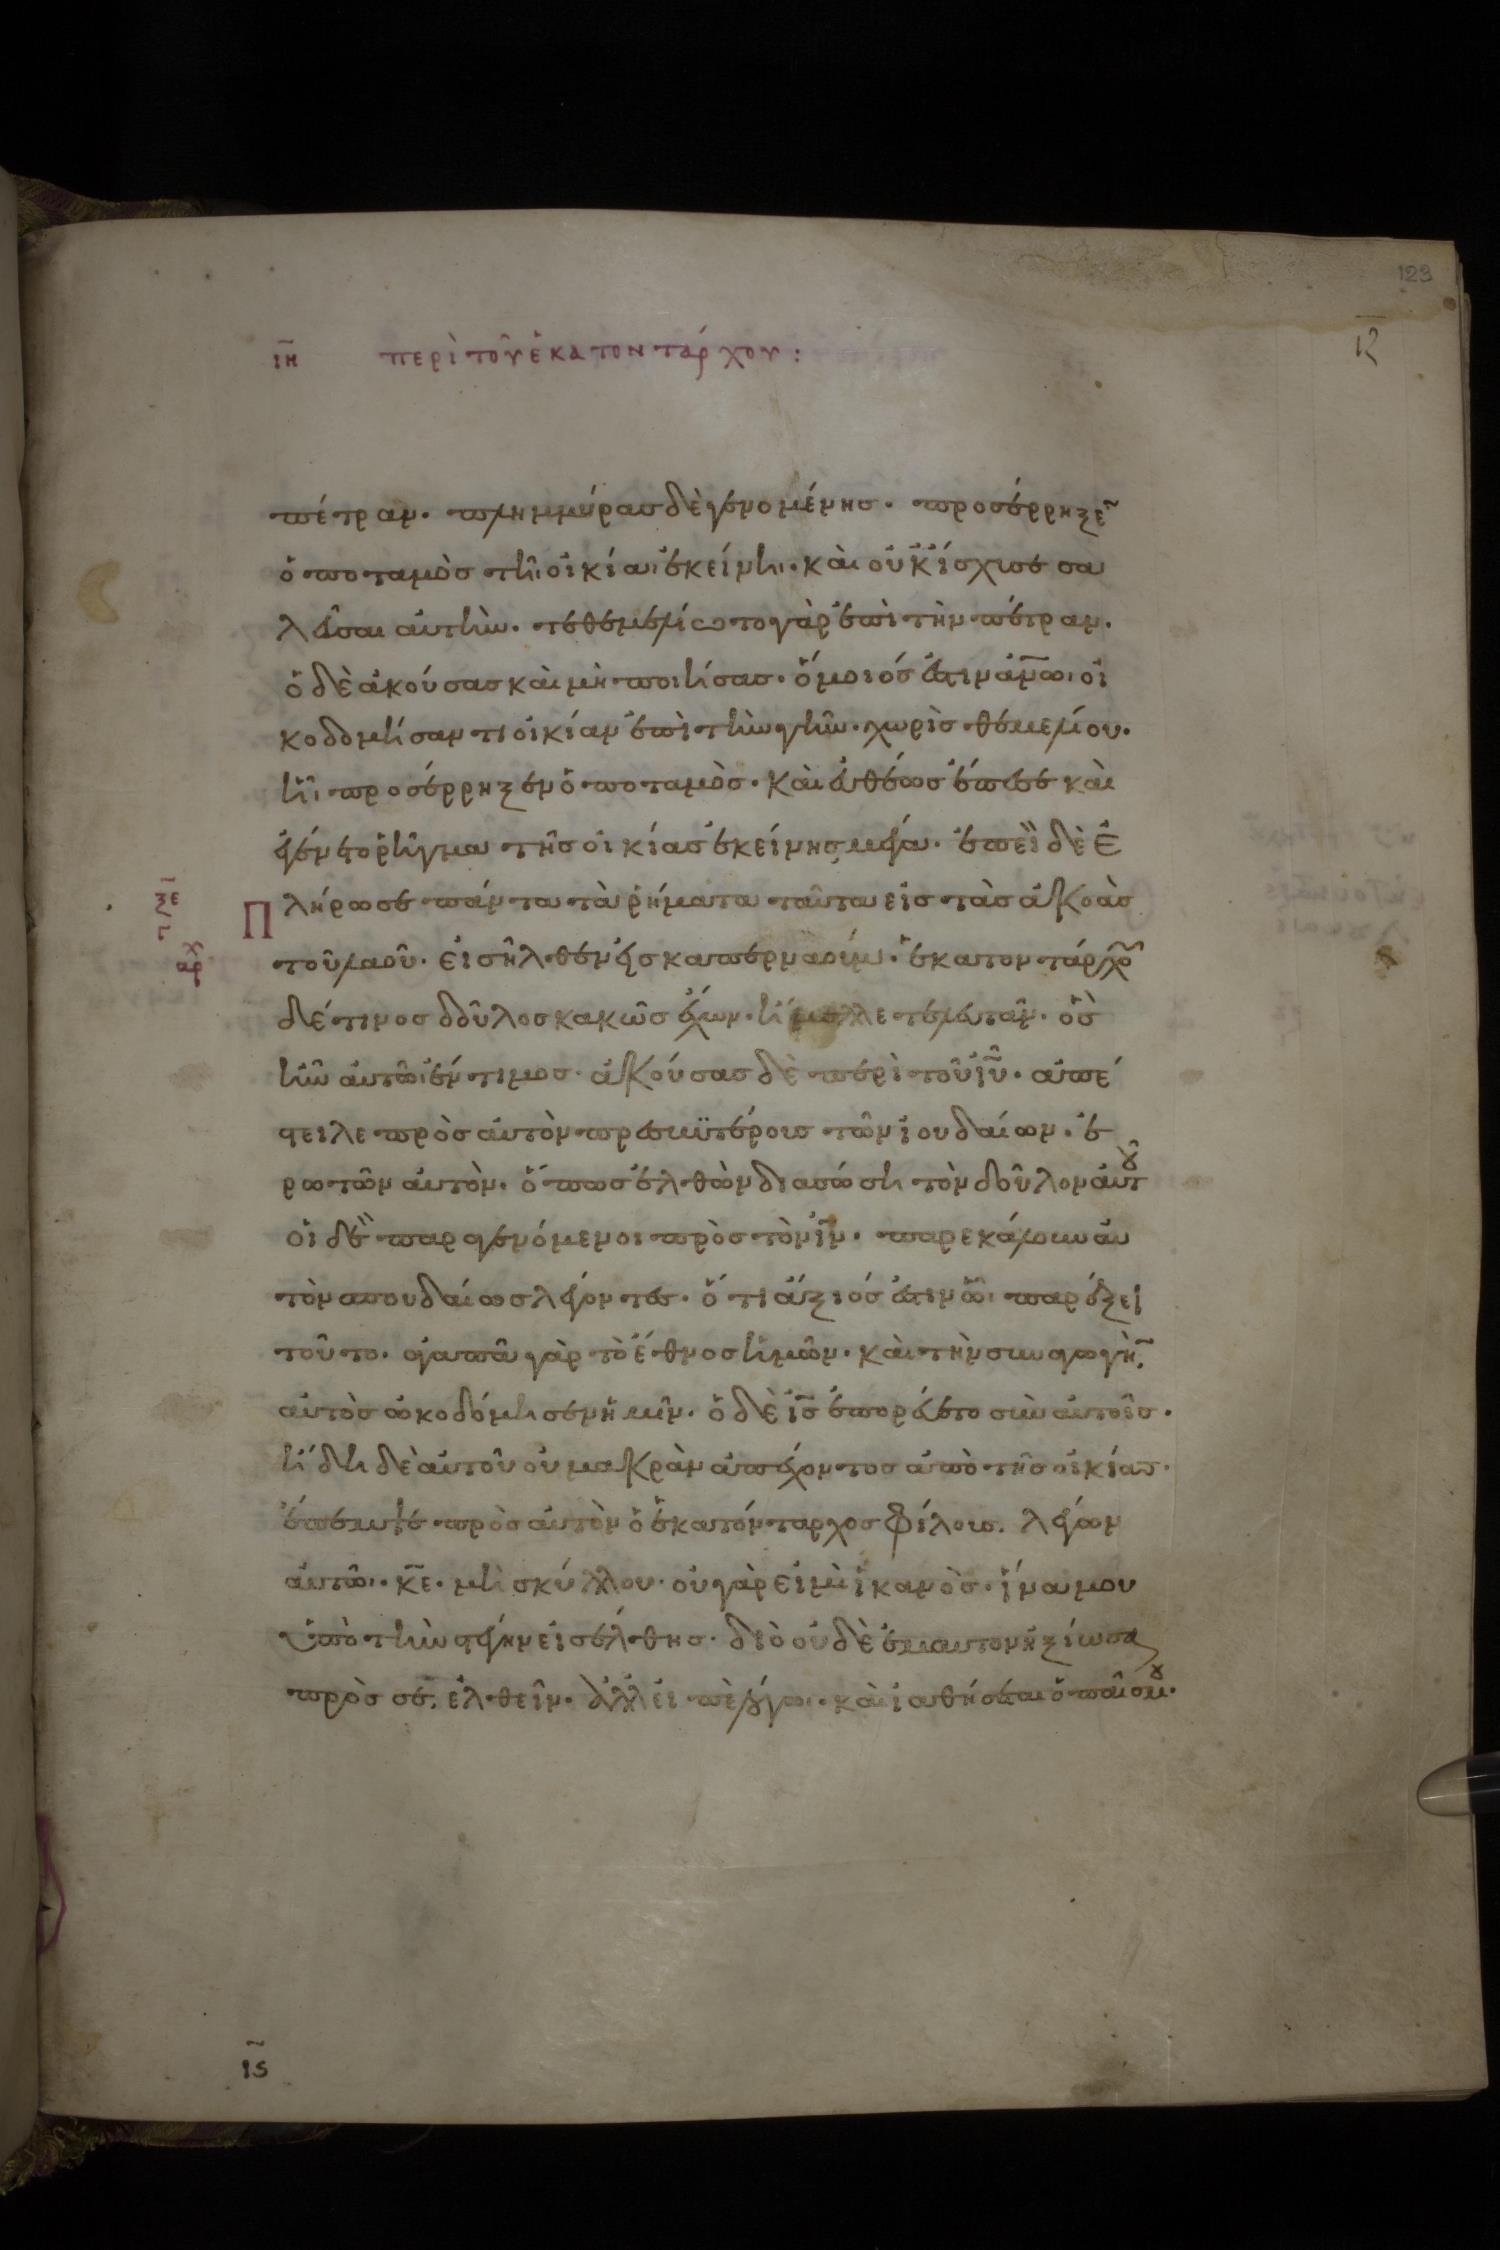 123
ιη περὶ τοῦ ἑκατοντάρχου:
πέτραν· πλημμύρας δὲ γενομένης· προσέρρηξε
ὁ ποταμὸς τῆι οἰκίαι ἐκείνηι· καὶ οὐκ ἴσχυσε σα
λεῦσαι αὐτὴν· τεθεμελίωτο γὰρ ἐπὶ τὴν πέτραν·
ὁ δὲ ἀκούσας καὶ μὴ ποιήσας· ὅμοιός ἐστιν ἀνῶι οἰ
κοδομήσαντι οἰκίαν ἐπὶ τὴν γῆν· χωρὶς θεμελίου·
ἧι προσέρρηξεν ὁ ποταμὸς· καὶ εὐθέως ἔπεσε καὶ
ἐγένετο ῥῆγμα τῆς οἰκίας ἐκείνης μέγα· ἐπεὶ δὲ ἐ
πλήρωσε πάντα τὰ ῥήματα ταῦτα εἰς τὰς ἀκοὰς
ξε
γ
αρχ
τοῦ λαοῦ· εἰσῆλθεν εἰς καπερναούμ· ἑκατοντάρχου
δέ τινος δοῦλος κακῶς ἔχων· ἤμελλε τελευτᾶν· ὃς
ἦν αὐτῶι ἔντιμος· ἀκούσας δὲ περὶ τοῦ ιυ· ἀπέ
στειλε πρὸς αὐτὸν πρεσβυτέρους τῶν ἰουδαίων· ἐ
ρωτῶν αὐτὸν· ὅπως ἐλθὼν διασώσηι τὸν δοῦλον αὐτοῦ
οἱ δὲ παραγενόμενοι πρὸς τὸν ιν· παρεκάλουν αὐ
τὸν σπουδαίως λέγοντες· ὅτι ἄξιός ἐστιν ὧι παρέξει
τοῦτο· ἀγαπᾶ γὰρ τὸ ἔθνος ἡμῶν· καὶ τὴν συναγωγὴν
αὐτὸς ὠκοδόμησεν ἡμῖν· ὁ δὲ ις ἐπορεύετο σὺν αὐτοῖς·
ἤδη δὲ αὐτοῦ οὐ μακρὰν ἀπέχοντος ἀπὸ τῆς οἰκίας·
ἔπεμψε πρὸς αὐτὸν ὁ ἑκατόνταρχος φίλους. λέγων
αὐτῶι· κε· μὴ σκύλλου· οὐ γὰρ εἰμὶ ἱκανὸς· ἵνα μου
ὑπὸ τὴν στέγην εἰσέλθης· διὸ οὐδὲ ἐμαυτὸν ἠξίωσα
πρὸς σὲ ἐλθεῖν· ἀλλ εἰπὲ λόγωι· καὶ ἰαθήσεται ὁ παῖς μου·
ις